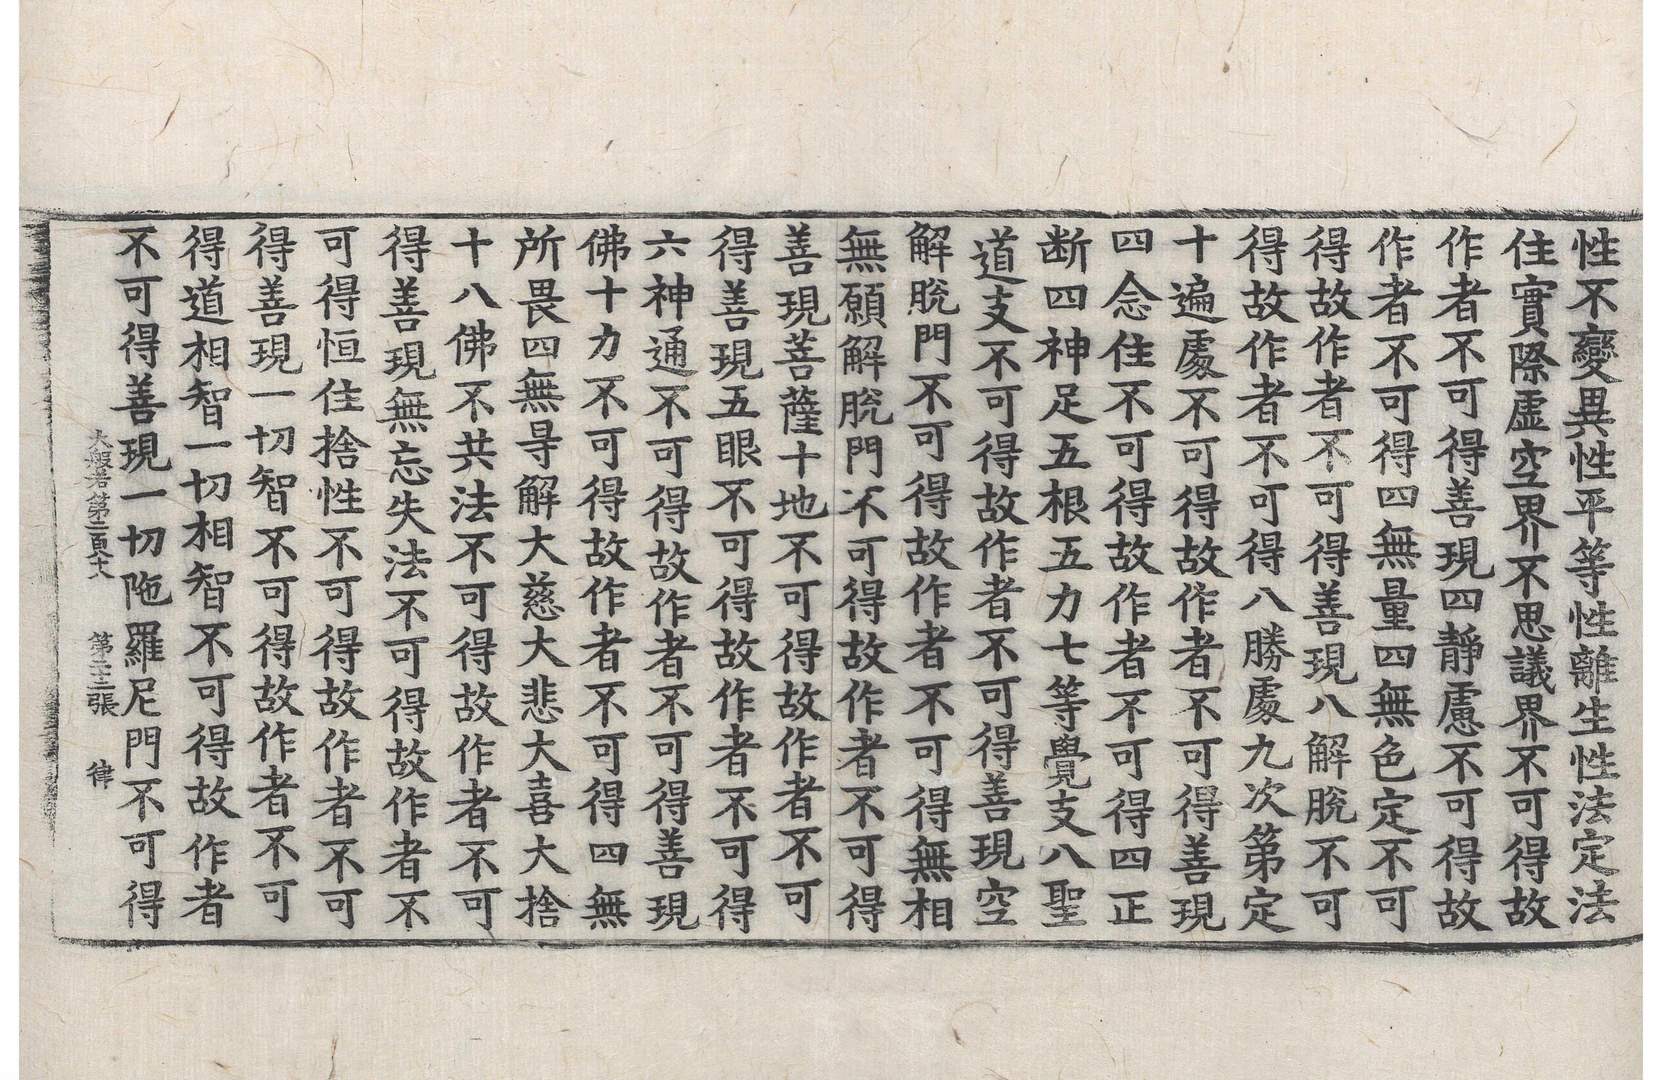 性不變異性平等性離生性法定法
住實際虛空界不思議界不可得故
作者不可得善現四靜慮不可得故
作者不可得四無量四無色定不可
得故作者不可得善現八解脫不可
得故作者不可得八勝處九次第定
十遍處不可得故作者不可得善現
四念住不可得故作者不可得四正
断四神足五根五力七等覺支八聖
道支不可得故作者不可得善現空
解脫門不可得故作者不可得無相
無願解脫門不可得故作者不可得
善現菩薩十地不可得故作者不可
得善現五眼不可得故作者不可得
六神通不可得故作者不可得善現
佛十力不可得故作者不可得四無
所畏四無㝵解大慈大悲大喜大捨
十八佛不共法不可得故作者不可
得善現無忘失法不可得故作者不
可得恒住捨性不可得故作者不可
得善現一切智不可得故作者不可
得道相智一切相智不可得故作者
不可得善現一切陁羅尼門不可得
大般若第二百六十八 第二十二張 律